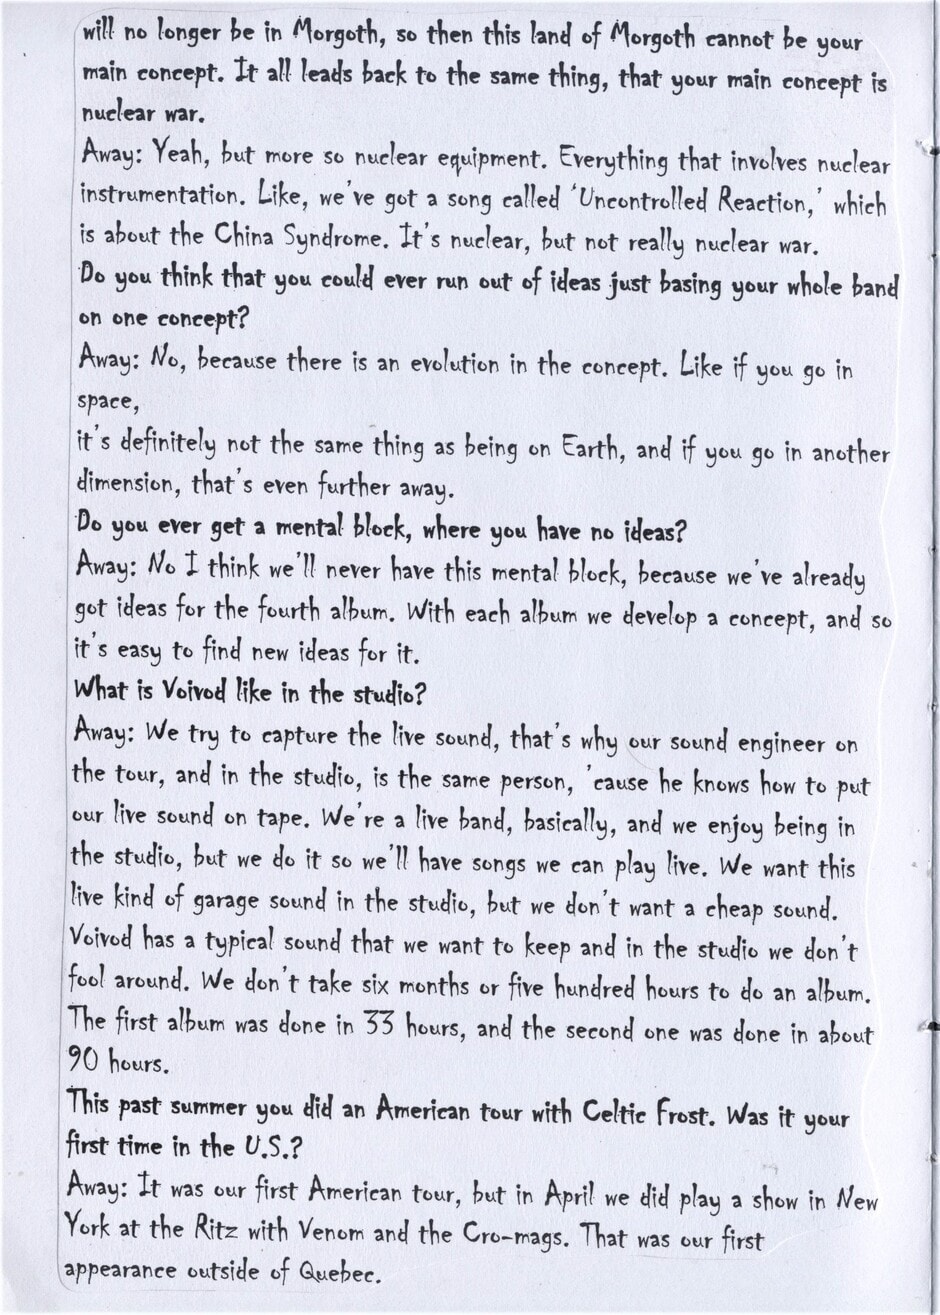 will no longer be in Morgoth, so then this land of Morgoth cannot be your
main concept. It all leads back to the same thing, that your main concept is
nuclear war.
Away: Yeah, but more so nuclear equipment. Everything that involves nuclear
instrumentation. Like, we've got a song called 'Uncontrolled Reaction,' which
is about the China Syndrome. It's nuclear, but not really nuclear war.
Do you think that you could ever run out of ideas just basing your whole band
on one concept?
Away: No, because there is an evolution in the concept. Like if you go in
space,
it's definitely not the same thing as being on Earth, and if you go in another
dimension, that's even further away.
Do you ever get a mental block, where you have no ideas?
Away: No I think we'll never have this mental block, because we've already
got ideas for the fourth album. With each album we develop a concept, and so
it's easy to find new ideas for it.
What is Voivod like in the studio?
Away: We try to capture the live sound, that's why our sound engineer on
the tour, and in the studio, is the same person, 'cause he knows how to put
our live sound on tape. We're a live band, basically, and we enjoy being in
the studio, but we do it so we'll have songs we can play live. We want this
live kind of garage sound in the studio, but we don't want a cheap sound.
Voivod has a typical sound that we want to keep and in the studio we don't
fool around. We don't take six months or five hundred hours to do an album.
The first album was done in 33 hours, and the second one was done in about
90 hours.
This past summer you did an American tour with Celtic Frost. Was it your
first time in the U.S.?
Away: It was our first American tour, but in April we did play a show in New
York at the Ritz with Venom and the Cro-mags. That was our first
appearance outside of Quebec.